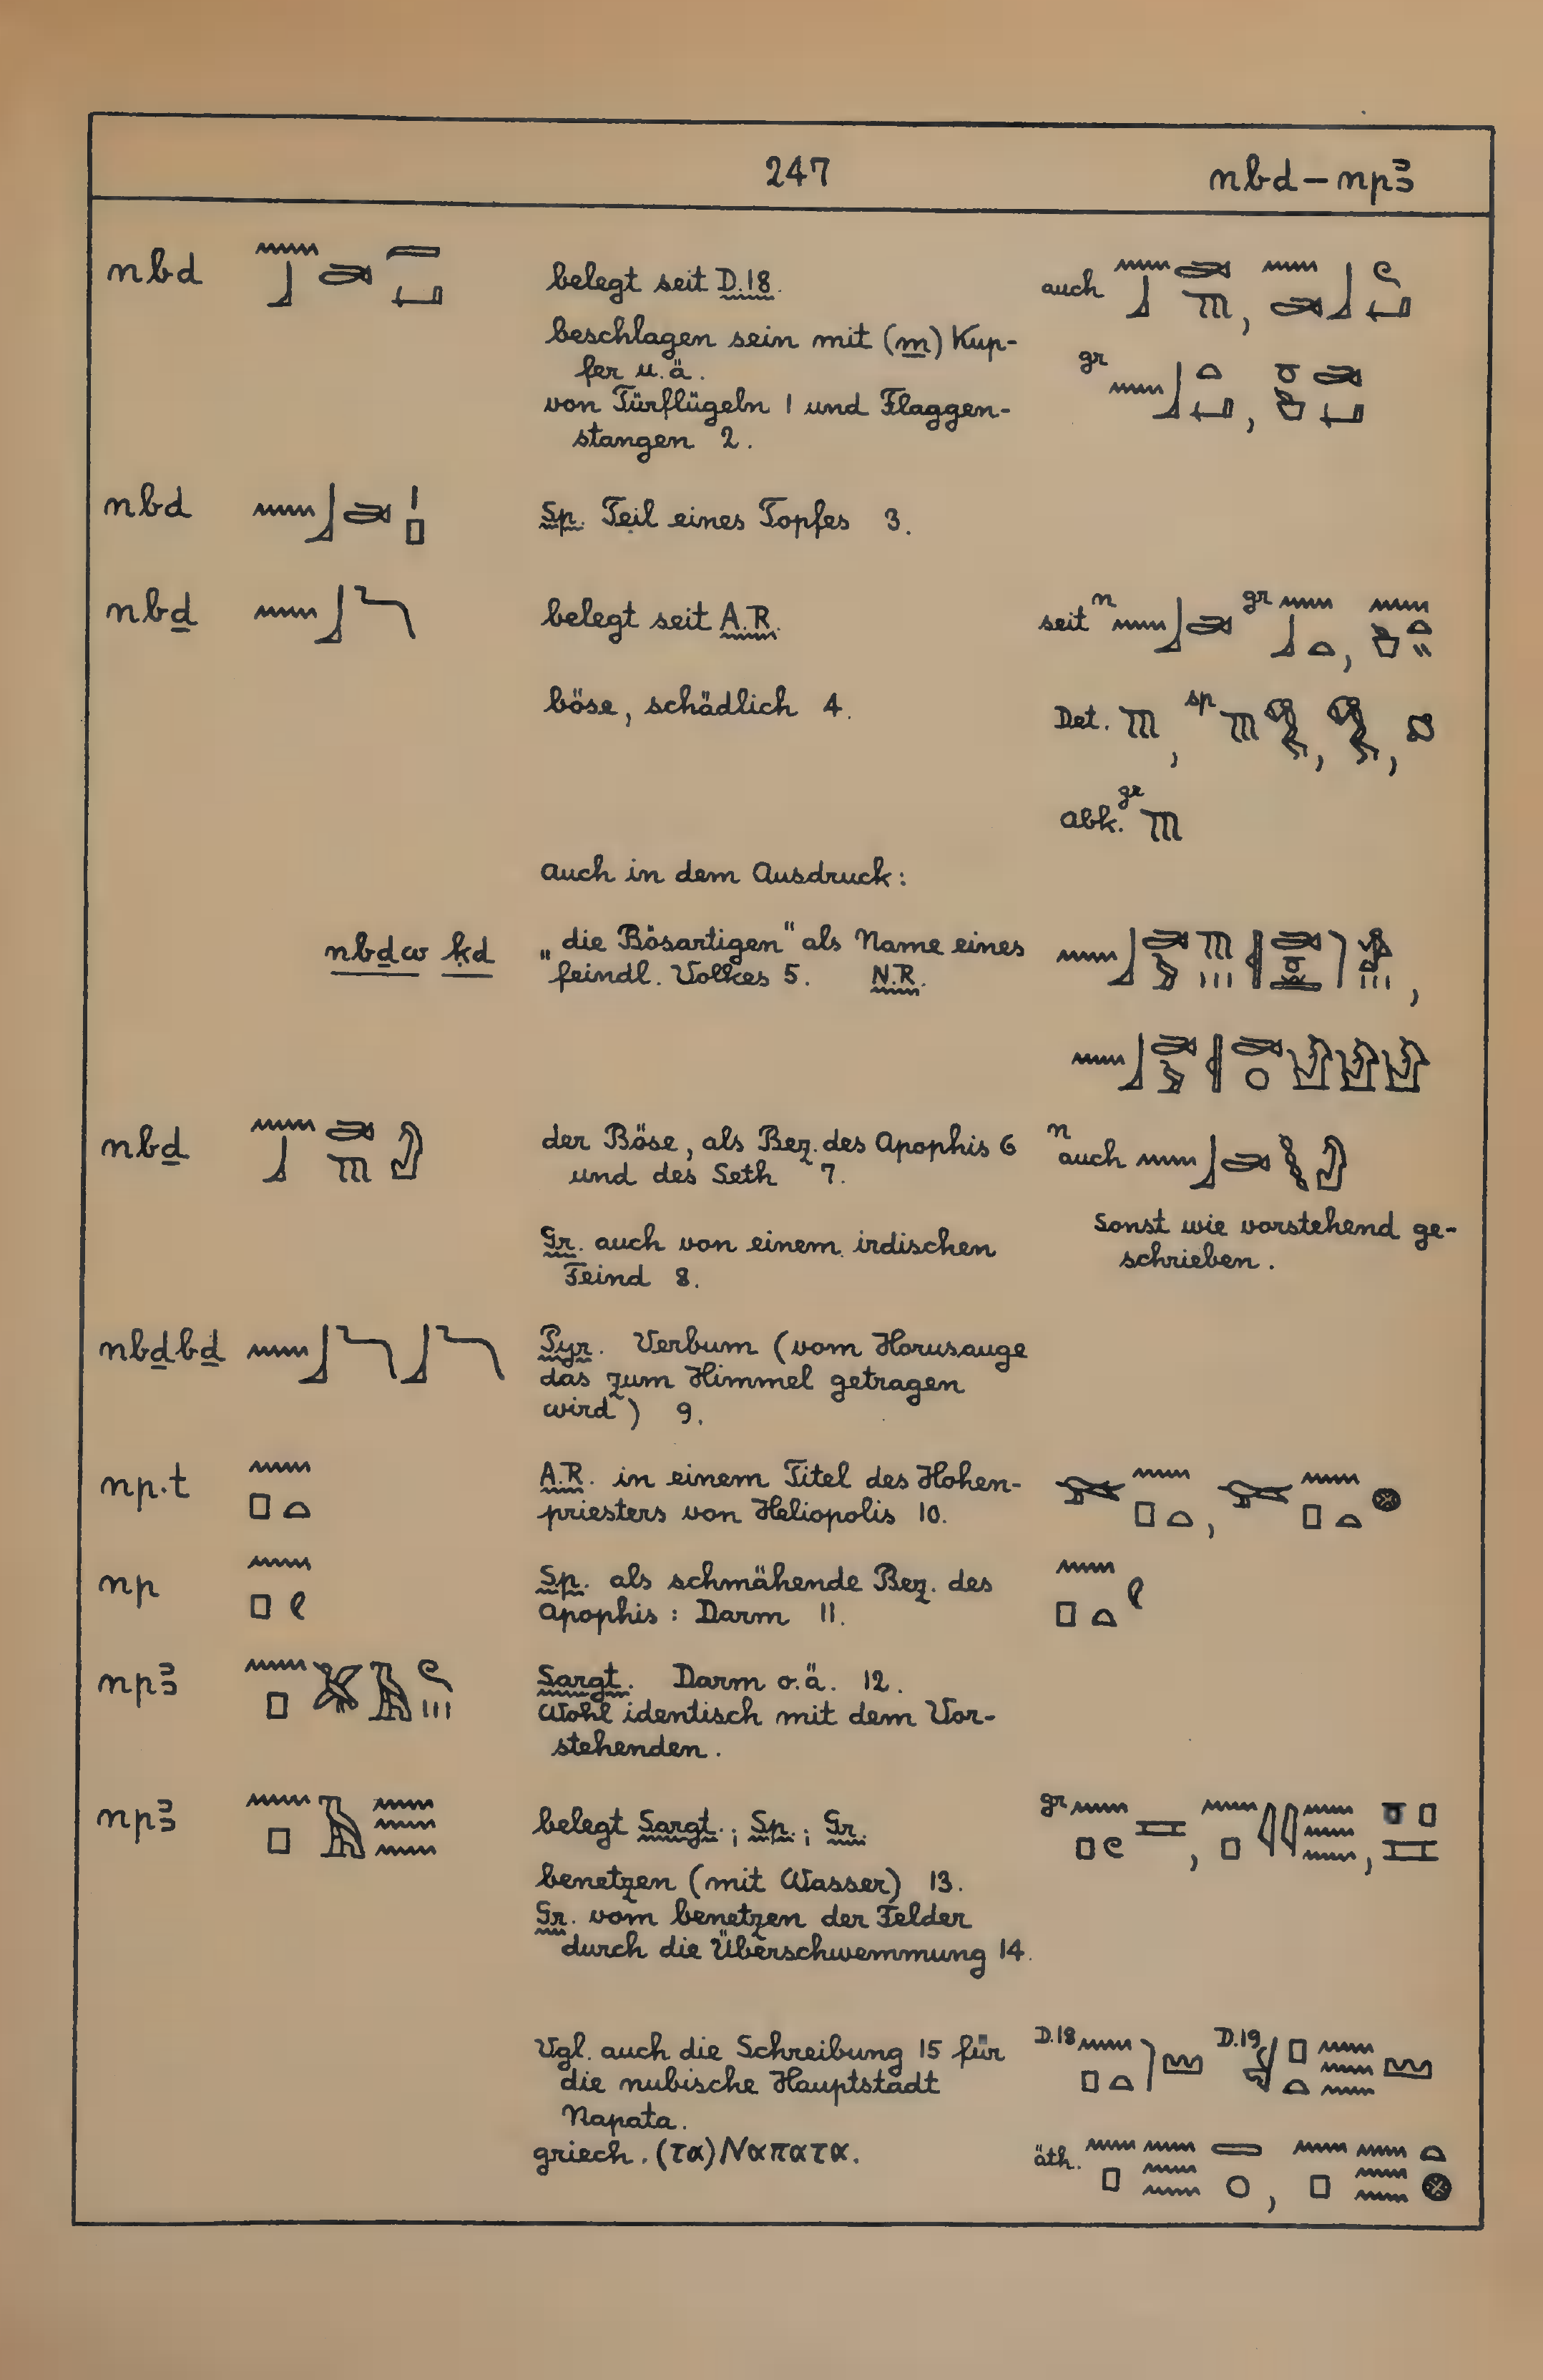 247
nbd – npꜣ
nbd
belegt seit D.18.
auch
beschlagen sein mit (m) Kup-
fer u.ä.
gr
von Türflügeln 1 und Flaggen-
stangen 2.
nbd
Sp. Teil eines Topfes 3.
nbḏ
belegt seit A.R.
seit n
gr
böse, schädlich 4.
Det.
sp
Abk. gr
Auch in dem Ausdruck:
nbḏw ḳd
„die Bösartigen“ als Name eines
feindl. Volkes 5. N.R.
nbḏ
der Böse, als Bez. des Apophis 6
und des Seth 7.
n
auch
Gr. auch von einem irdischen
Feind 8.
Sonst wie vorstehend ge-
schrieben.
nbḏbḏ
Pyr. Verbum (vom Horusauge
das zum Himmel getragen
wird) 9.
np.t
A.R. in einem Titel des Hohen-
priesters von Heliopolis 10.
np
Sp. als schmähende Bez. des
Apophis: Darm 11.
npꜣ
Sargt. Darm o.ä. 12.
Wohl identisch mit dem Vor-
stehenden.
npꜣ
belegt Sargt.; Sp.; Gr.
gr
benetzen (mit Wasser) 13.
Gr. vom benetzen der Felder
durch die Überschwemmung 14.
Vgl. auch die Schreibung 15 für
die nubische Hauptstadt
Napata.
D.18
D.19
griech. (τα) Ναπατα.
äth.